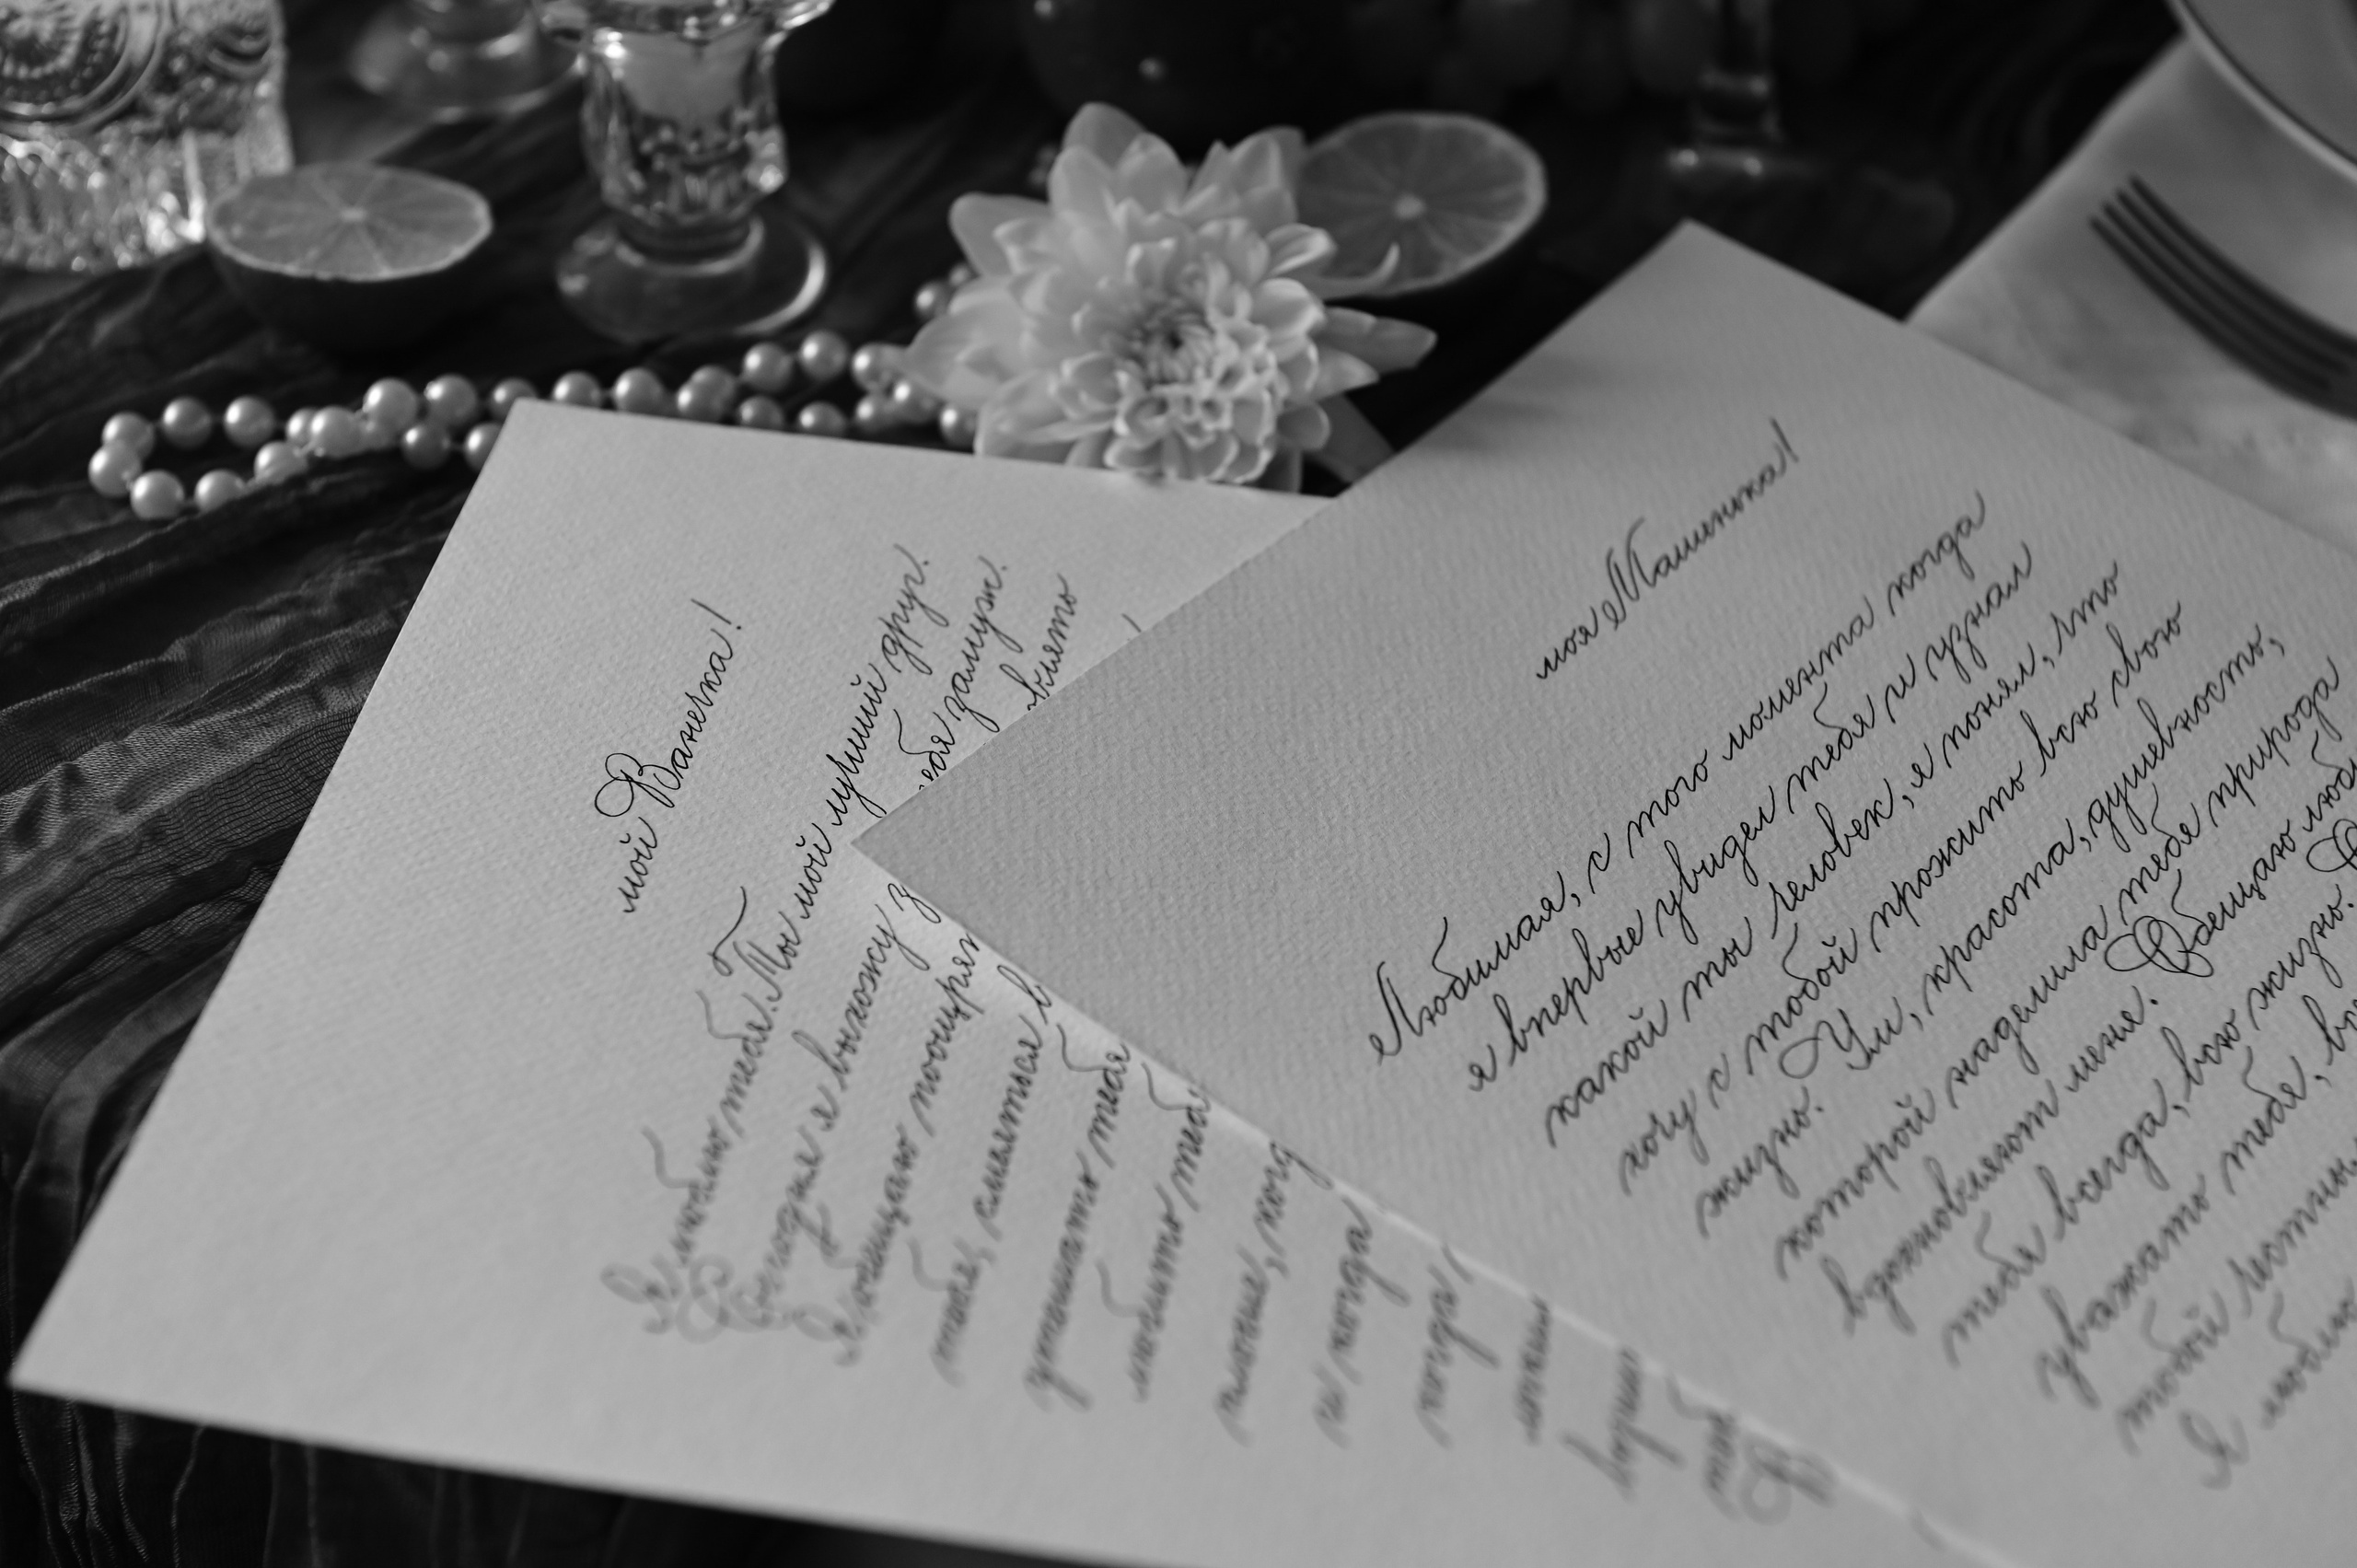 мой Ванечка!
Я люблю тебя. Ты мой лучший друг.
Сегодня я выхожу за тебя замуж.
Я обещаю поощрять
тебя, смеяться в
утешать тебя
любить тебя
плохие, когда
и когда
когда
моим
тебя
моя Машенька!
Любимая, с того момента когда
я впервые увидел тебя и узнал
какой ты человек, я понял, что
хочу с тобой прожить всю свою
жизнь. Ум, красота, душевность,
которой наделила тебя природа
вдохновляют меня. Обещаю люб
тебя всегда, всю жизнь.
уважать тебя,
тобой честным
Я люблю